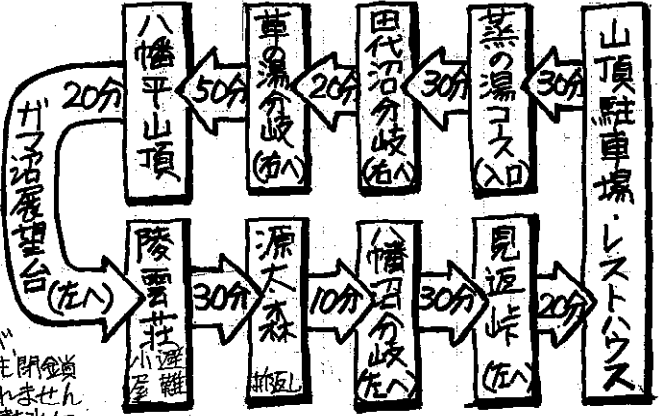 山頂駐車場・レストハウス
30分
蒸の湯コース
(入口)
30分
田代沼分岐
(右へ)
20分
草の湯分岐
(右へ)
50分
八幡平山頂
20分
ガマ沼展望台
(左へ)
陵雲荘
避難
小屋
30分
源太森
折返し
10分
八幡沼分岐
(左へ)
30分
見返峠
(左へ)
20分
が
閉鎖
れません